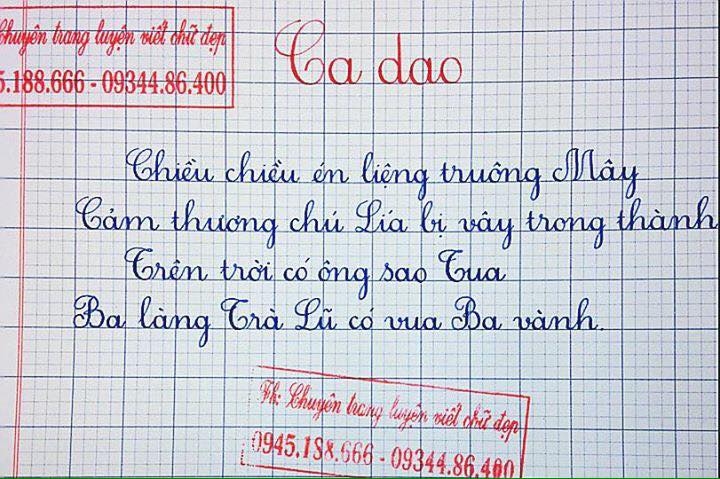 Chuyên trang luyện viết chữ đẹp
5.188.666 - 09344.86.400
Ca dao
Chiều chiều én liệng truông Mây
Cảm thương chú Lía bị vây trong thành
Trên trời có ông sao Tua
Ba làng Trà Lũ có vua Ba vành.
Fk: Chuyên trang luyện viết chữ đẹp
0945.188.666 - 09344.86.400